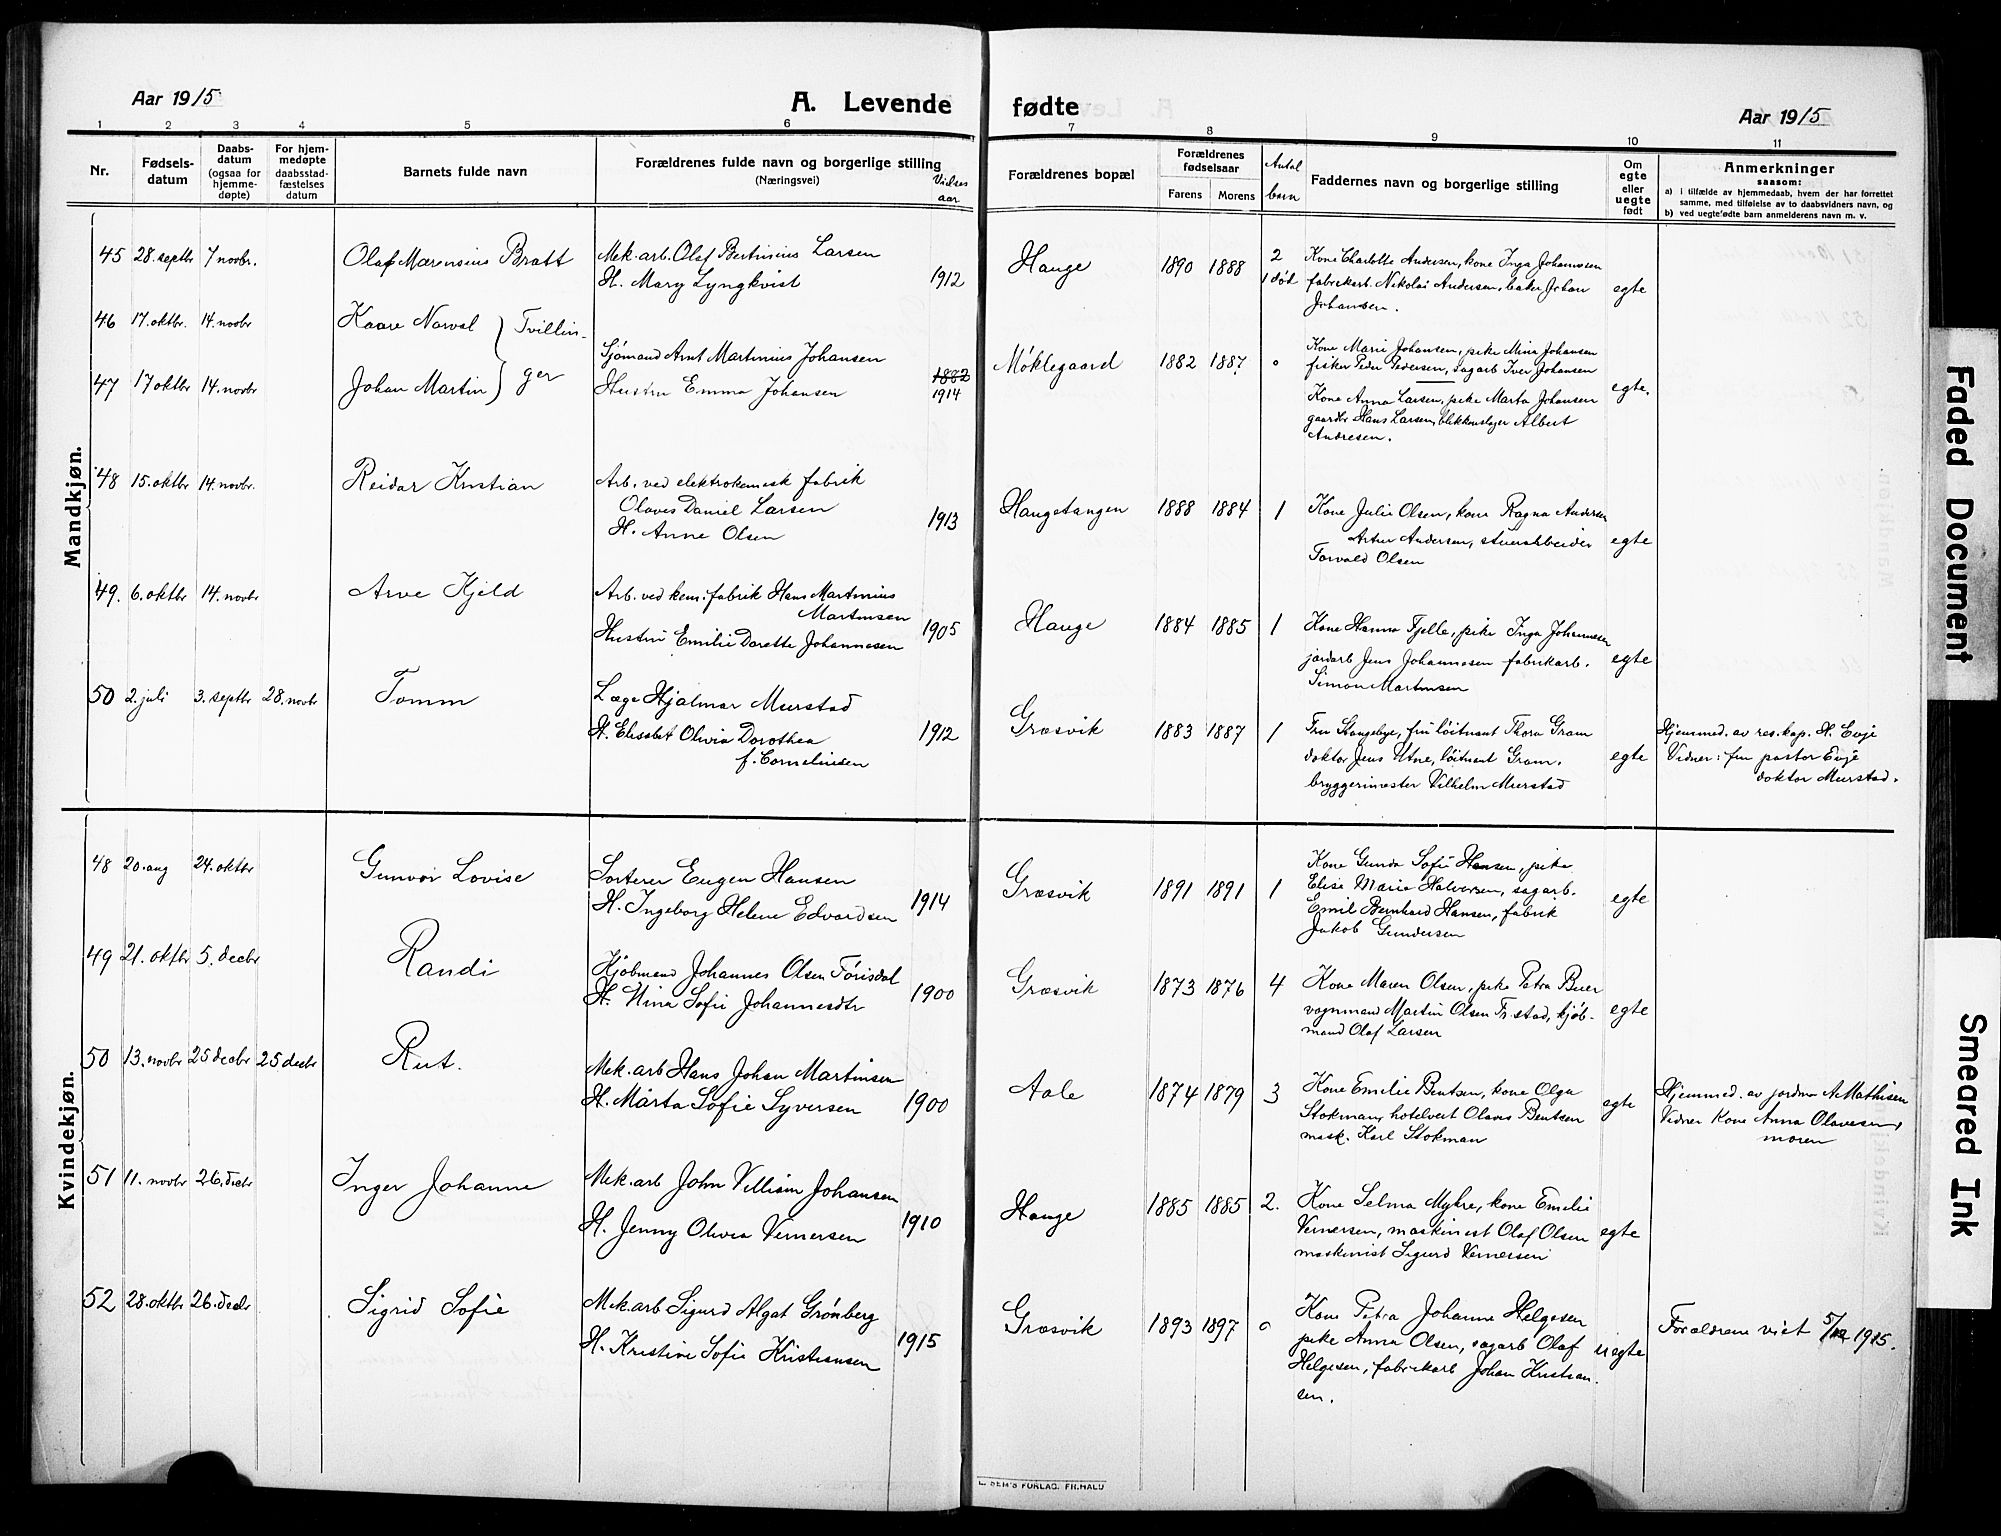 Aar 1915
A. Levende fødte
Aar 1915
1 2 3 4 5 6 7 8 9 10 11
Nr.
Fødsels-
datum
Daabs-
datum
(ogsaa for
hjemme-
døpte)
For hjem-
medøpte
daabsstad-
fæstelses
datum
Barnets fulde navn
Forældrenes fulde navn og borgerlige stilling
(Næringsvei)
Vielses
aar
Forældrenes bopæl
Forældrenes
fødselsaar
Farens Morens
Antal
barn
Faddernes navn og borgerlige stilling
Om
egte
eller
uegte
født
Anmerkninger
saasom:
a) i tilfælde av hjemmedaab, hvem der har forrettet
samme, med tilføielse av to daabsvidners navn, og
b) ved uegtefødte barn anmelderens navn m. v.
Mandkjøn.
45 28. septbr 7 novbr.
Olaf Marensius Bratt
Mek. arb. Olaf Bertinius Larsen
H. Mary Lyngkvist 1912
Hauge 1890 1888 2
1 død
Kone Charlotte Andersen, kone Inga Johannesen
fabrikarb. Nikolai Andersen, baker Johan
Johansen.
egte
46 17. oktbr. 14. novbr
Kaare Norval } Tvillin-
47 17 oktbr 14. novbr.
Johan Martin } ger
Sjømand Arnt Martinius Johansen
Hustru Emma Johansen
1882
1914
Møklegaard 1882 1887 0
Kone Marie Johansen, pike Mina Johansen
fisker Peder Pedersen, sagarb Iver Johansen
Kone Anna Larsen, pike Marta Johansen
gaardbr Hans Larsen, blikkenslager Albert
Andresen.
egte.
48 15. oktbr 14. novbr.
Reidar Kristian
Arb. ved elektrokemisk fabrik
Olaves Daniel Larsen
H. Anne Olsen 1913
Haugetangen 1888 1884 1
Kone Julie Olsen, kone Ragna Andersen
Artur Andersen, stuerarbeider
Torvald Olsen
egte
49. 6. oktbr 14. novbr
Arve Kjeld
Arb. ved kem. fabrik Hans Martinius
Martinsen
Hustru Emilie Dorette Johannesen 1905
Hauge 1884 1885 1
Kone Hanna Tjelle, pike Inga Johannesen
jordarb Jens Johannesen fabrikarb.
Simon Martinsen
egte
50 2. juli 3. septbr 28. novbr
Tomm
Læge Hjalmar Murstad
H. Elisabet Olivia Dorothea
f. Cornelinsen 1912
Græsvik 1883 1887 1
Fru Stangebye, fru løitnant Thora Gram
doktor Jens Utne, løitnant Gram.
bryggerimester Vilhelm Murstad
egte
Hjemmed. av res. kap. H. Evje
Vidner: fru pastor Evje
doktor Murstad.
Kvindekjøn.
48 20. aug 24. oktbr
Gunvor Lovise
Sorterer Eugen Hansen
H. Ingeborg Helene Edvardsen 1914
Græsvik 1891 1891 1
Kone Gunda Sofie Hansen, pike
Elise Marie Halversen, sagarb.
Emil Bernhard Hansen, fabrik
Jakob Gundersen
egte
49 21. oktbr 5. decbr
Randi
Kjøbmand Johannes Olsen Torisdal
H. Nina Sofie Johannesdtr 1900
Græsvik 1873 1876 4
Kone Maren Olsen, pike Petra Buer
vognmand Martin Olsen Tr.stad, kjøb-
mand Olaf Larsen
egte
50 13. novbr 25 decbr 25 decbr
Rut.
Mek. arb Hans Johan Martinsen
H. Marta Sofie Syversen 1900
Aale 1874 1879 3
Kone Emilie Bentsen, kone Olga
Stokman, hotelvert Olaves Bentsen
mask. Karl Stokman
egte
Hjemmed. av jordm A. Mathisen
Vidner Kone Anna Olavesen,
moren
51 11. novbr 26. decbr
Inger Johanne
Mek. arb John Villiam Johansen
H. Jenny Olivia Vernersen 1910
Hauge 1885 1885 2.
Kone Selma Myhre, kone Emilie
Vernersen, maskinist Olaf Olsen
maskinist Sigurd Vernersen
egte
52 28. oktbr 26. decbr
Sigrid Sofie
Mek. arb Sigurd Algot Grønberg
H. Kristine Sofie Kristiansen 1915
Græsvik 1893 1897 0
Kone Petra Johanne Helgesen
pike Anna Olsen, sagarb Olaf
Helgesen, fabrikarb Johan Kristian-
sen.
uegte
Forældrene viet 5/12 1915.
SEM'S FORLAG. FR.HALD
Faded Document
Smeared Ink